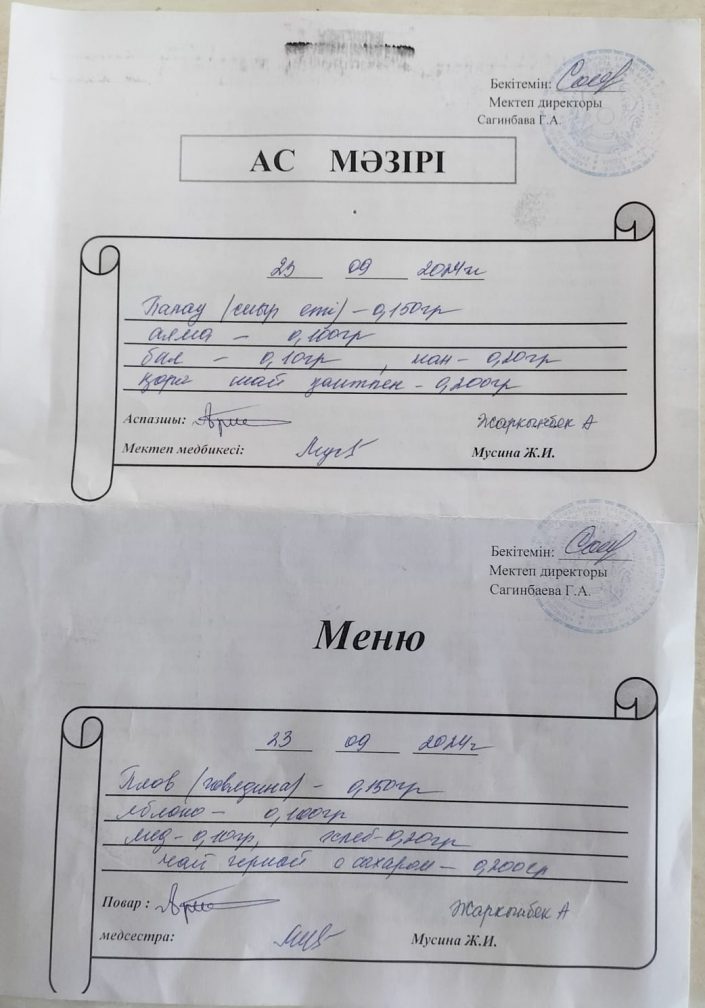 Бекітемін:
Мектеп директоры
Сагинбава Г.А.
АС МӘЗІРІ
23 09 2024ж
Палау (сиыр еті) – 0,150гр
алма – 0,100гр
бал – 0,10гр, нан – 0,20гр
қара шай қантпен – 0,200гр
Аспазшы: Жаркынбек А
Мектеп медбикесі: Мусина Ж.И.
Бекітемін:
Мектеп директоры
Сагинбаева Г.А.
Меню
23 09 2024г
Плов (говядина) – 0,150гр
яблоко – 0,100гр
мед – 0,10гр, хлеб – 0,20гр
чай черный с сахаром – 0,200гр
Повар : Жаркынбек А
медсестра: Мусина Ж.И.